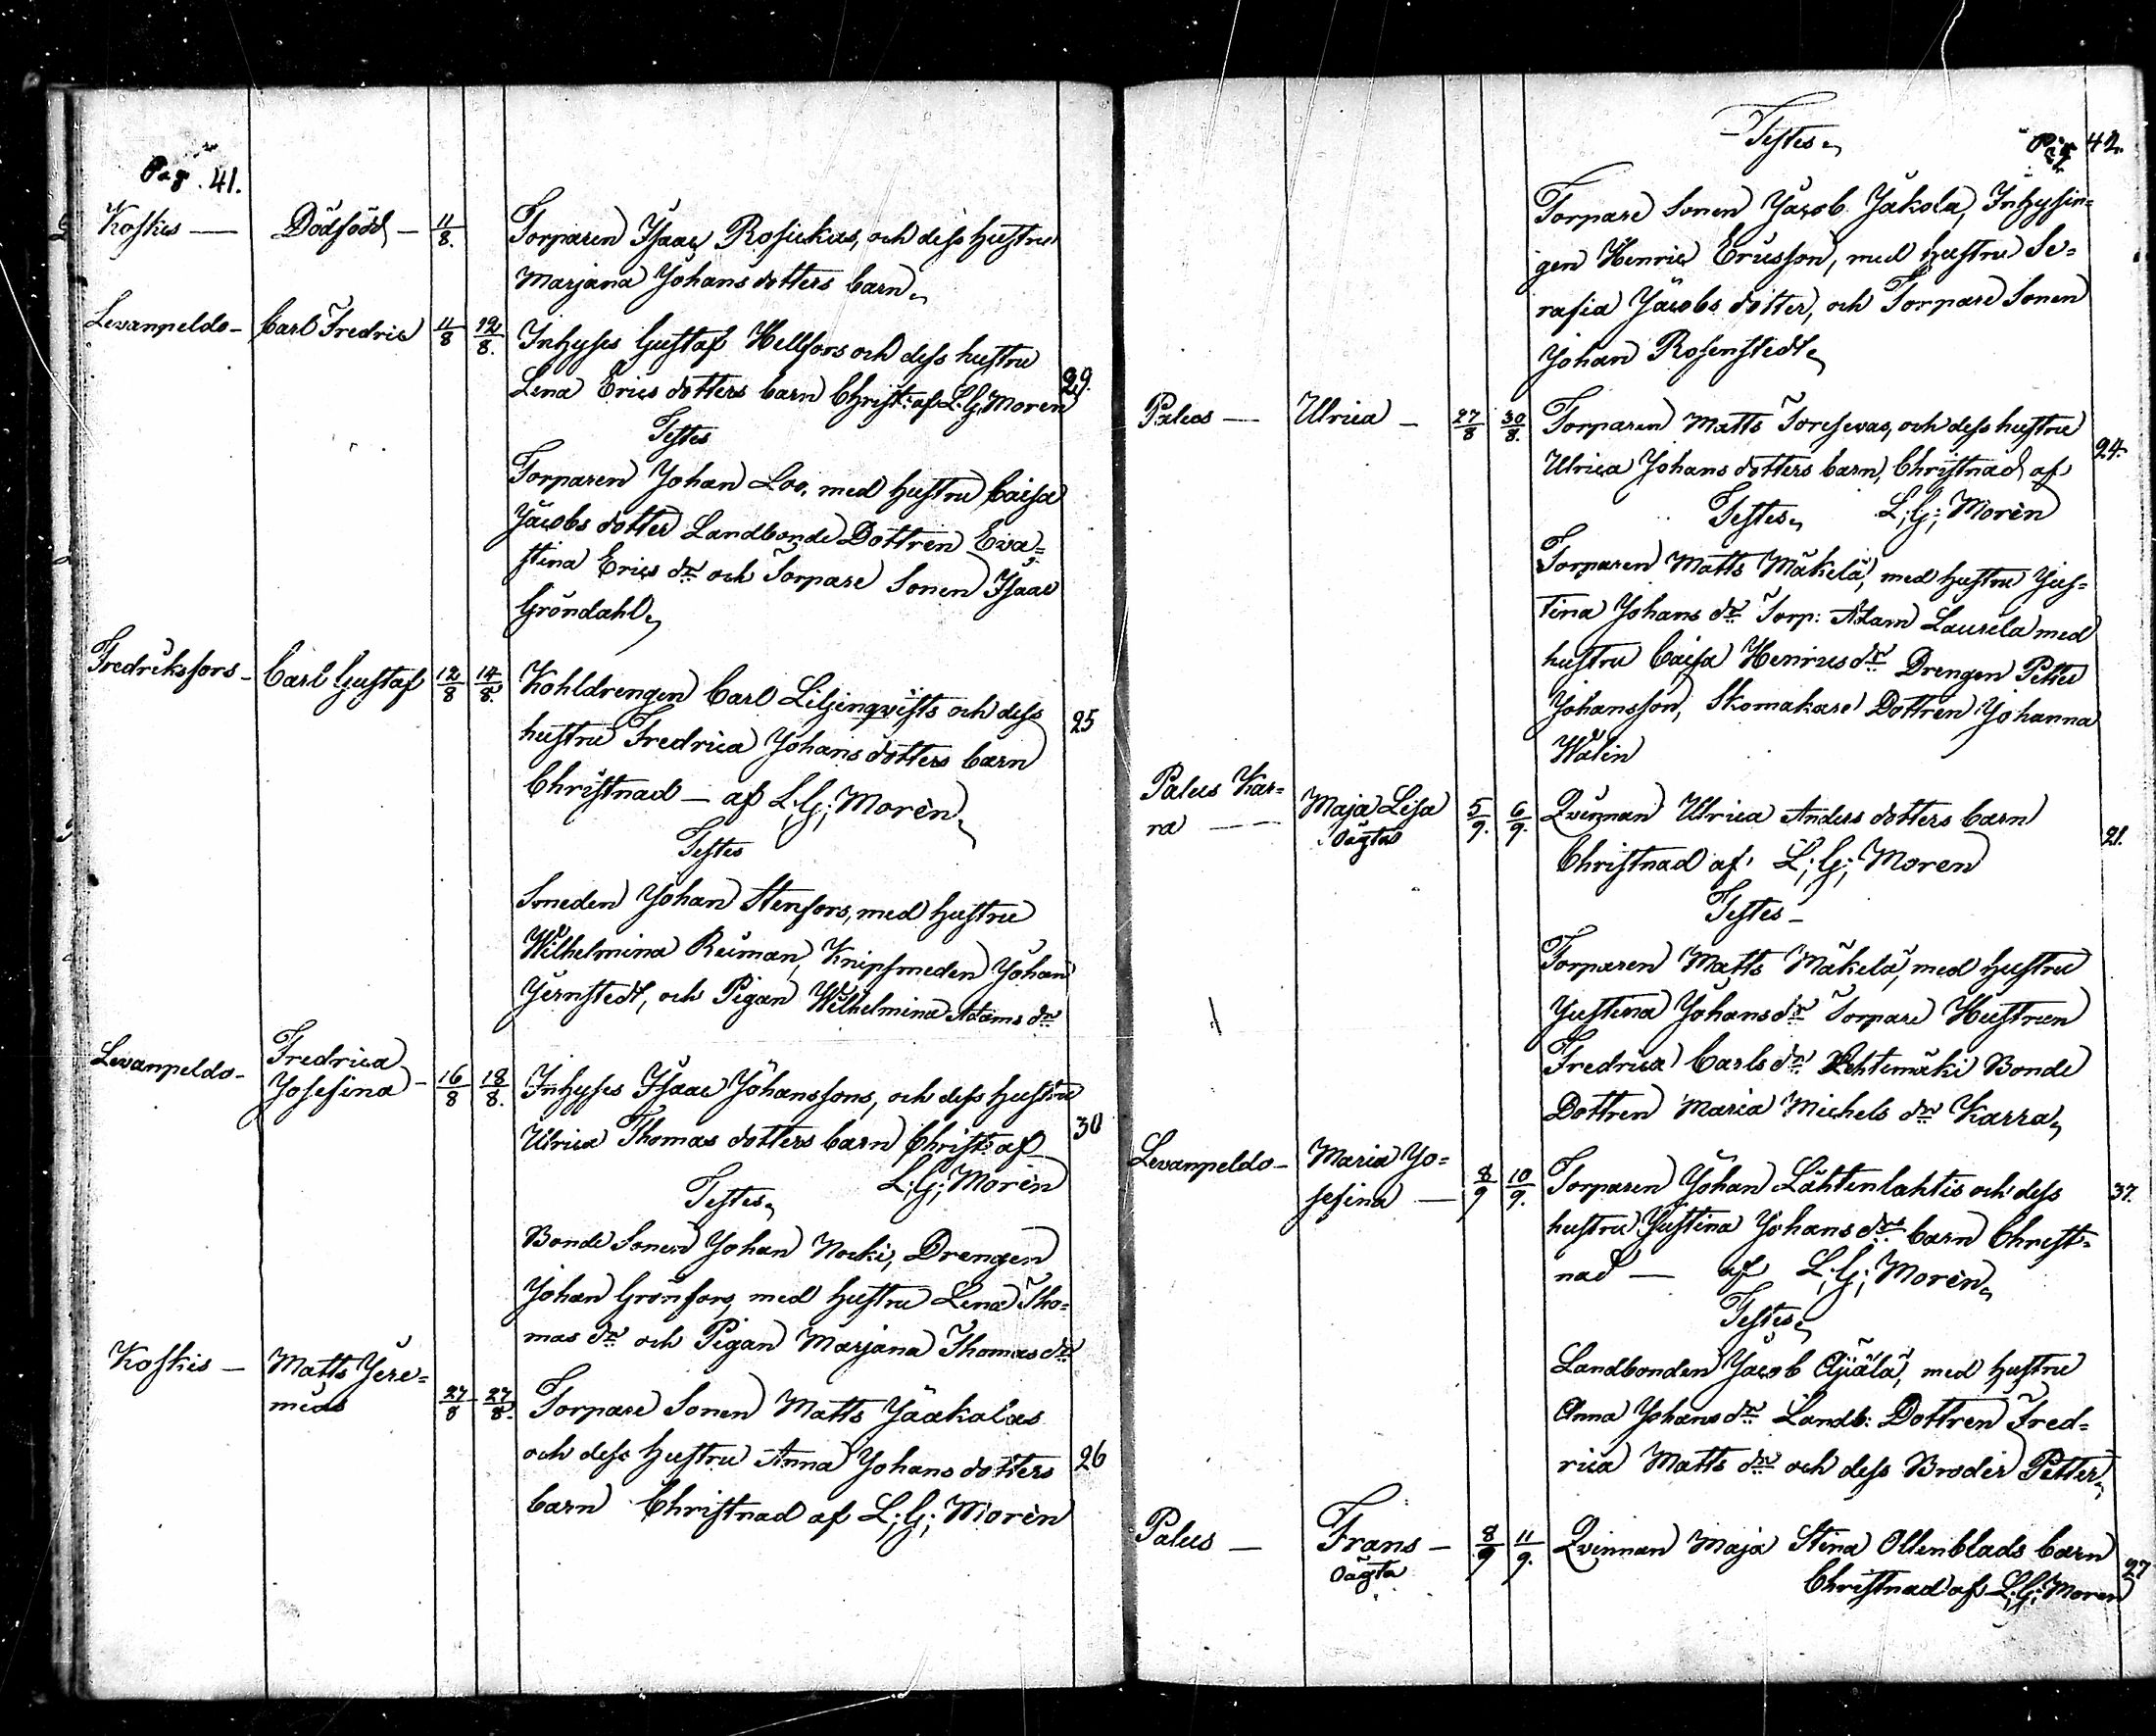 Pag. 41.
Koskis — Dödfödd — 11/8. Torparen Isaac Rosickas, och dess hustru
Marjana Johans dotters barn
Levanpeldo — Carl Fredric 11/8 12/8. Inhyses Gustaf Hellfors och dess hustru
Lena Erics dotters barn Christ: af L.G. Morén 29.
Testes
Torparen Johan Loo, med hustru Caisa
Jacobs dotter Landbonde Dottren Eva-
stina Erics dr och Torpare Sonen Isaac
Gröndahl
Fredriksfors — Carl Gustaf 12/8 14/8. Kohldrengen Carl Liljenqvists och dess 25
hustru Fredrica Johans dotters barn
Christnad — af L.G; Morèn
Testes
Smeden Johan Stenfors, med hustru
Wilhelmina Reiman, Knipsmeden Johan
Jernstedt, och Pigan Wilhelmina Adams dr
Levanpeldo — Fredrica
Josefina — 16/8 18/8. Inhyses Isaac Johanssons, och dess hustru 30
Ulrica Thomas dotters barn Christ: af
L;G; Morèn
Testes
Bonde Sonen Johan Nocki, Drengen
Johan Grönfors, med hustru Lena Tho-
mas dr och Pigan Marjana Thomas dr
Koskis — Matts Jere-
mias 27/8 27/8. Torpare Sonen Matts Jäakolas
och dess hustru Anna Johans dotters 26
barn Christnad af L;G; Morèn
Testes Pag 42.
Torpare Sonen Jacob Jakola, Inhysin-
gen Henric Ericsson, med hustru Se-
rafia Jacobs dotter, och Torpare Sonen
Johan Rosenstedt
Palus — Ulrica — 27/8 30/8. Torparen Matts Toresevas, och dess hustru 24.
Ulrica Johans dotters barn, Christnad af
Testes L;G; Morèn
Torparen Matts Mäkelä, med hustru Jus-
tina Johans dr Torp: Adam Laurela med
hustru Caisa Henrics dr Drengen Petter
Johansson, Skomakare Dottren Johanna
Walin
Palus Kar-
ra — Maja Lisa 5/9. 6/9. Qvinnan Ulrica Anders dotters barn 21.
oägta Christnad af L;G; Moren
Testes —
Torparen Matts Mäkelä, med hustru
Justina Johans dr Torpare Hustrun
Fredrica Carls dr Lehtimäki Bonde
Dottren Maria Michels dr Karra
Levanpeldo — Maria Jo-
sefina — 8/9 10/9. Torparen Johan Lähtenlahtis och dess 37.
hustru Justina Johans drs barn Christ-
nad — af L;G; Morèn
Testes
Landbonden Jacob Äijälä, med hustru
Anna Johans dr Landb: Dottren Fred-
rica Matts dr och dess Broder Petter
Palus — Frans — 8/9 11/9. Qvinnan Maja Stina Ollenblads barn 27
oägta Christnad af L;G; Moren